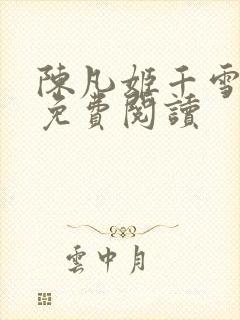 陳凡姬千雪
免費閱讀
雲中月